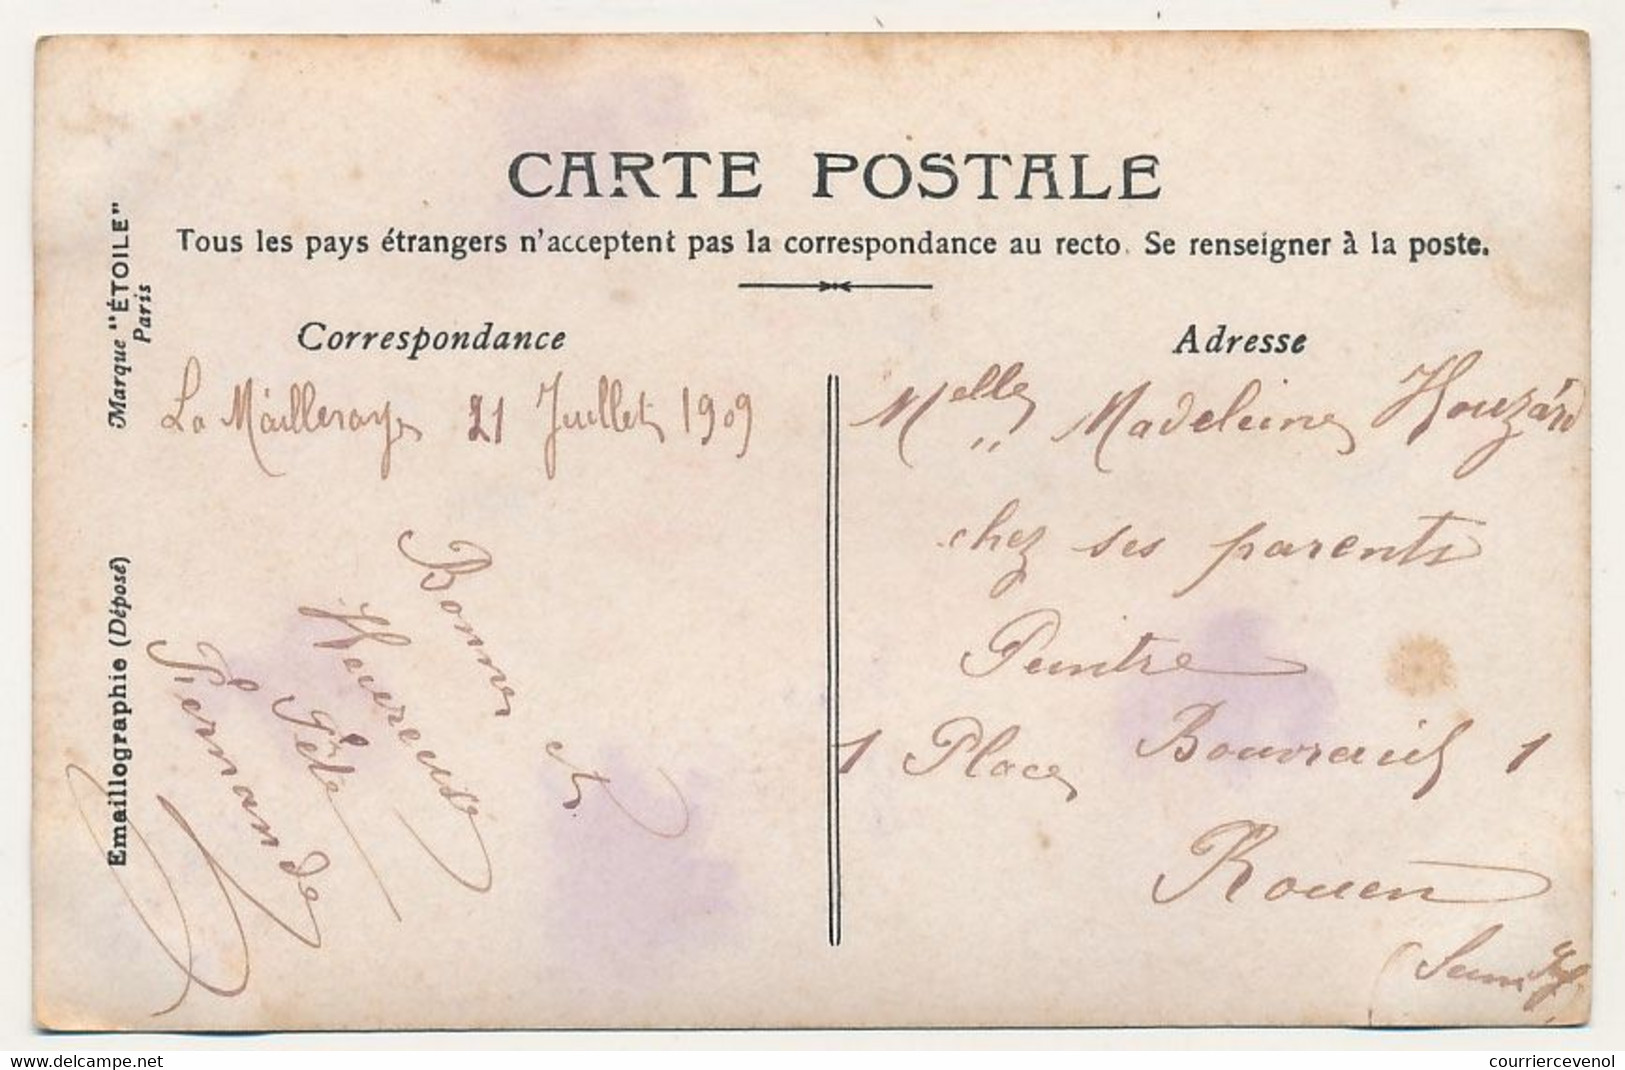 CARTE POSTALE
Tous les pays étrangers n'acceptent pas la correspondance au recto. Se renseigner à la poste.
Marque "ÉTOILE"
Paris
Emaillographie (Déposé)
Correspondance
La Mailleraye 21 Juillet 1909
Bonne et
Heureuse
Fête
Fernande
Adresse
Melle Madeleine Houzard
chez ses parents
Peintre
1 Place Bouvreuil 1
Rouen
(Seine Inf.
delcampe.net
courriercevenol